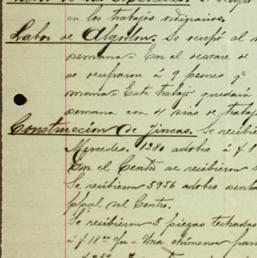 en los trabajos ordinarios.
Labor de Algodón. Se ocupó al
semana. En el desvare se
se ocuparon á 9 peones q
mana. Este trabajo quedará
semana con el riso de trabaj
Construcción de fincas. Se recibie
Mercedes. 1280 adobes á $1
En el Centro se recibieron
Se recibieron 5956 adobes
ppal del Centro.
Se recibieron 5 piezas techadas
á $18 c/u - Una chimenea para